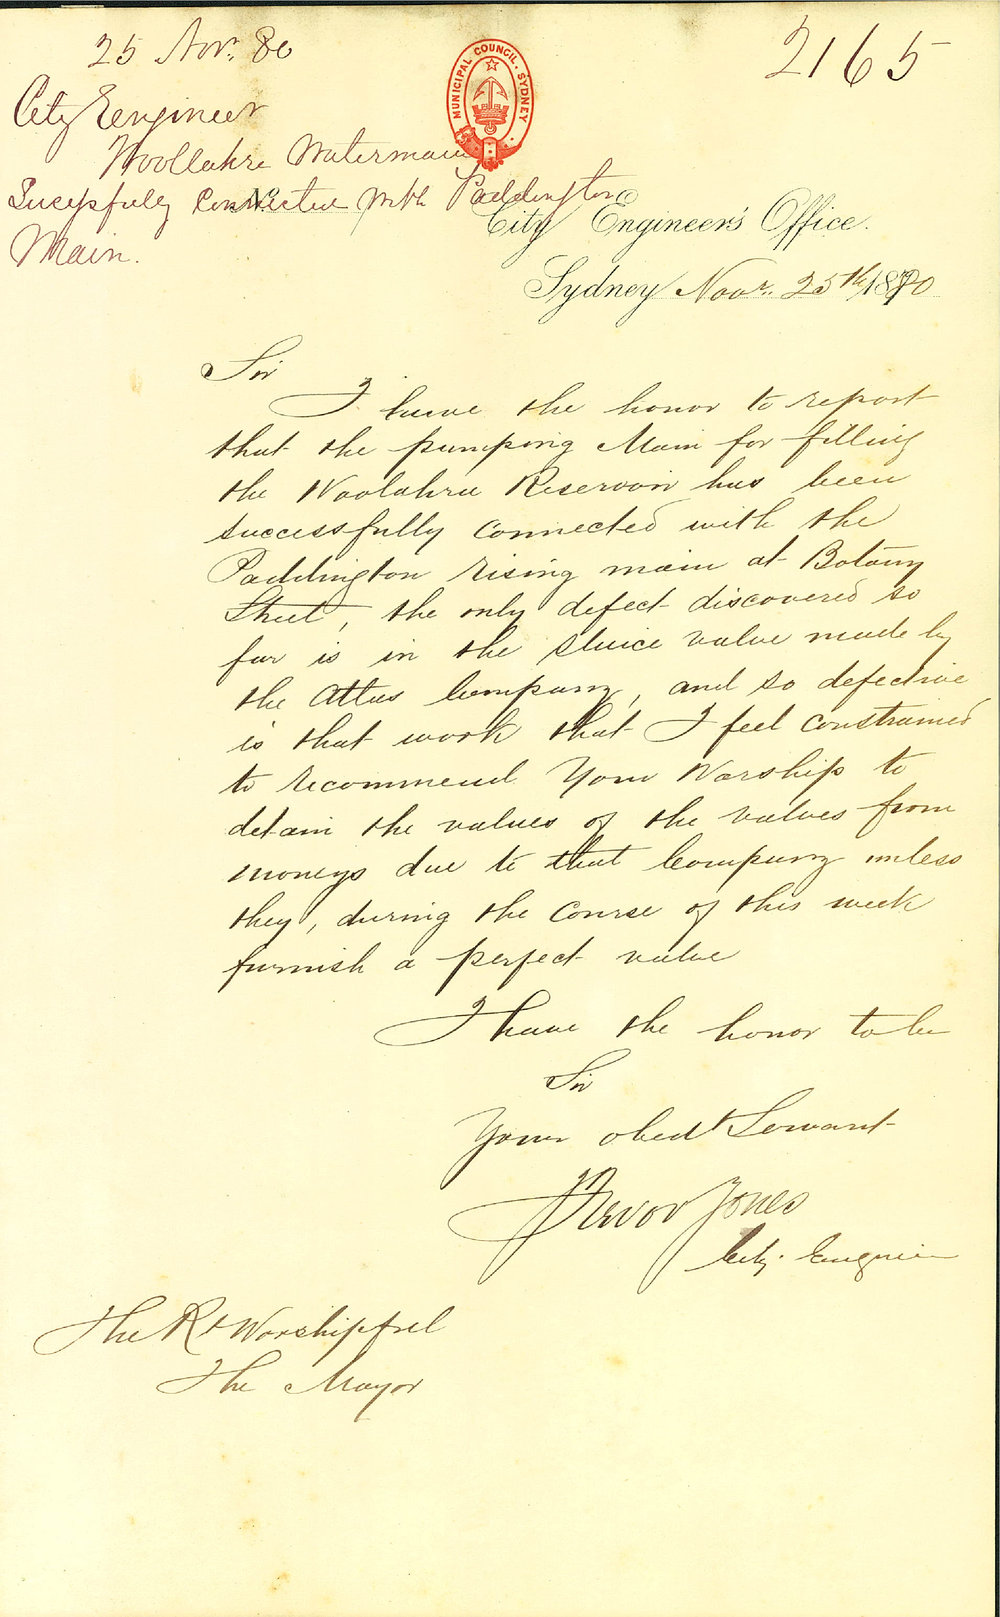 25 Novr. 80
2165
City Engineer
Woollahra Watermain
Sucessfully Connected with Paddington
Main.
MUNICIPAL COUNCIL. SYDNEY
No.
City Engineer's Office.
Sydney Novr. 25th 1880
Sir
I have the honor to report
that the pumping Main for filling
the Woolahra Reservoir has been
successfully connected with the
Paddington rising main at Botany
Street, the only defect discovered so
far is in the sluice valve made by
the Atlas Company, and so defective
is that work that I feel constrained
to recommend Your Worship to
detain the values of the valves from
moneys due to that Company unless
they, during the course of this week
furnish a perfect valve
I have the honor to be
Sir
Your obedt Servant
Trevor Jones
City Engineer
The Rt Worshipful
The Mayor